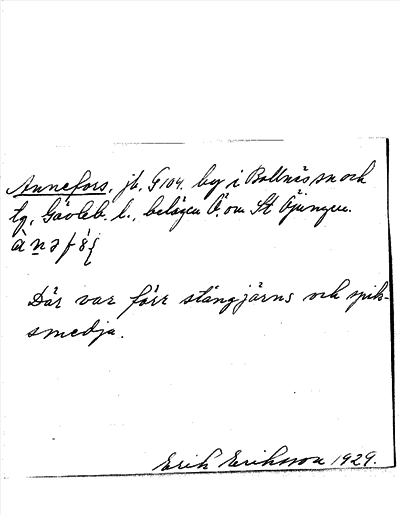 Annefors, jb, G 104. by i Bollnäs sn och
tg, Gävleb. l., belägen Ö. om St Öjungen.
Där var förr stångjärns och spik-
smedja.
Erik Eriksson 1929.